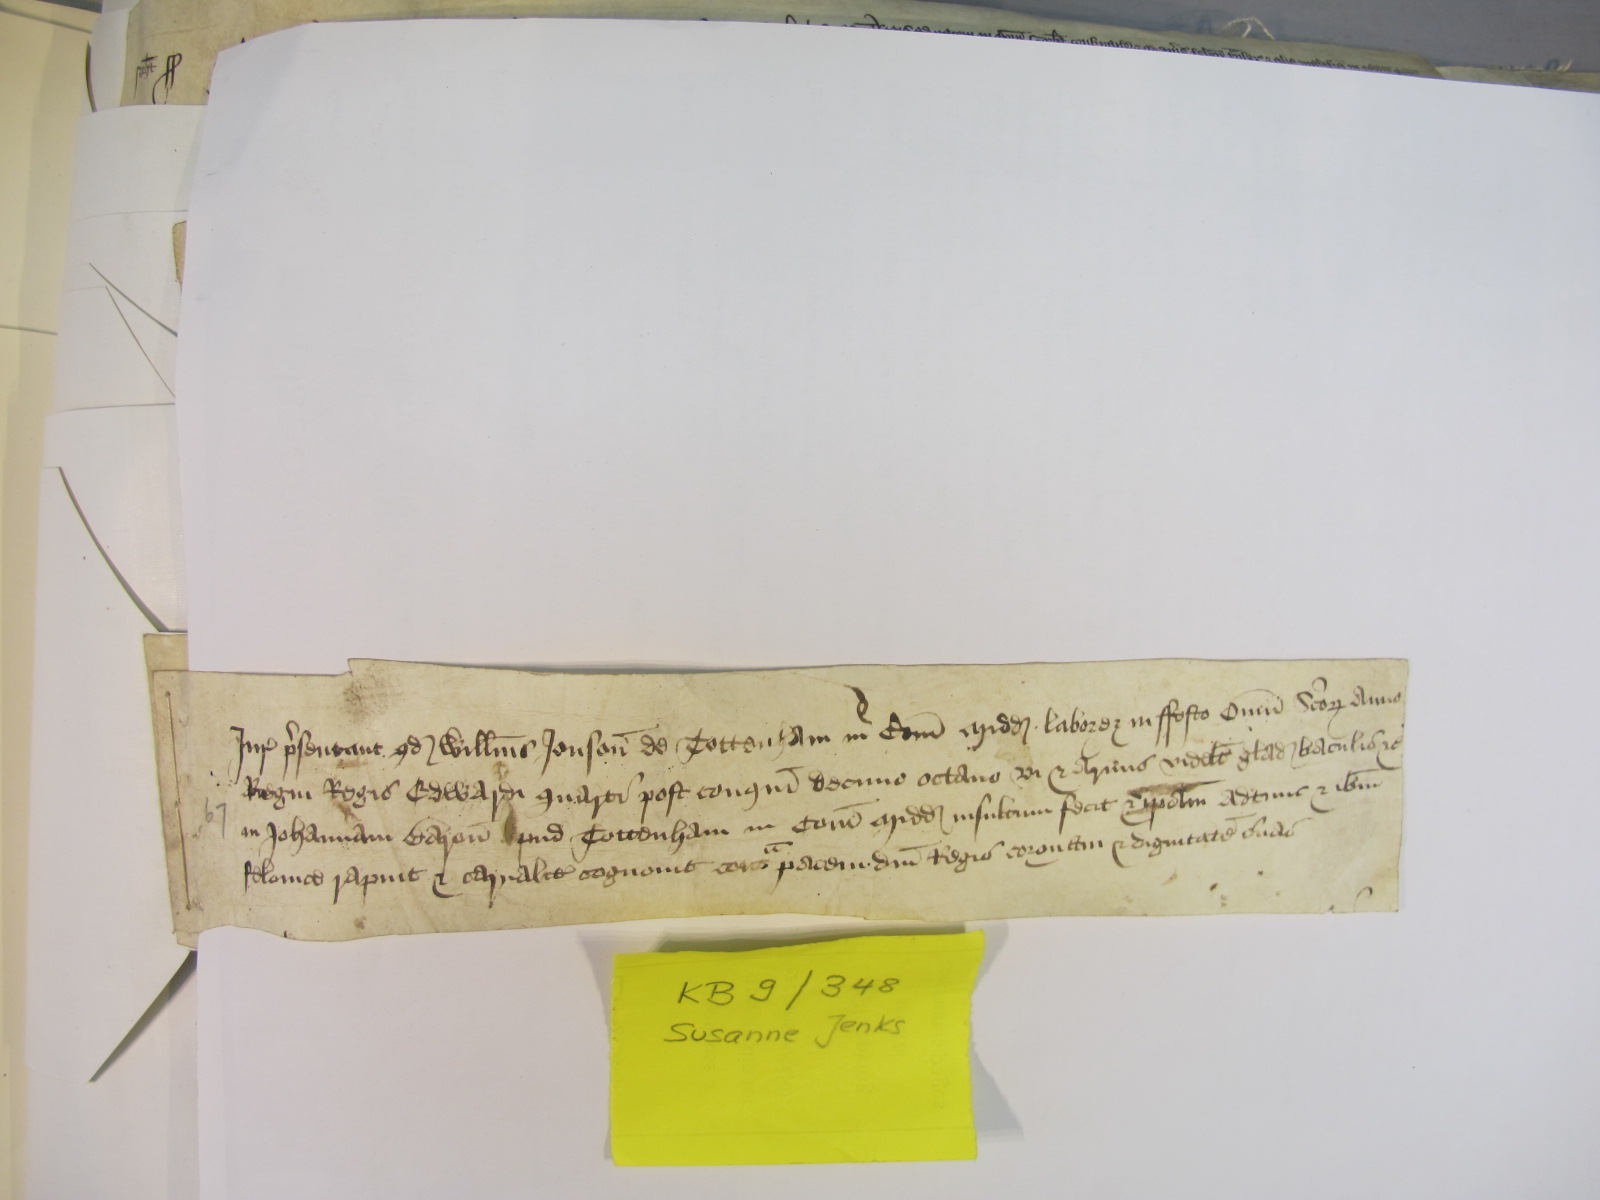 Jur̛ p̛sentant qd̛ Willm̅s Jonson̅ de Tottenham in Com̅ Midd̛ laborer in ffesto Omn̅i Sc̛or̛ Anno
Regni Regis Edwardi quarti post conqm̅ decimo octavo vi & armis videlt̅ glad̛ baculis &c̛
in Johannam apud Tottenham in Com̅ Midd̛ insultum fecit & ip̅am Johm̅ adtunc & ibm̅
felonice rapuit & carnalit̛ cognovit contᵃ pacem dm̅ Regis coronam & dignitate̅ suas
67
KB 9/348
Susanne Jenks